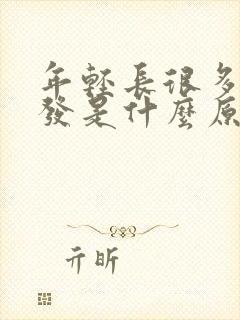 年輕長很多
發是什麼原
亓昕